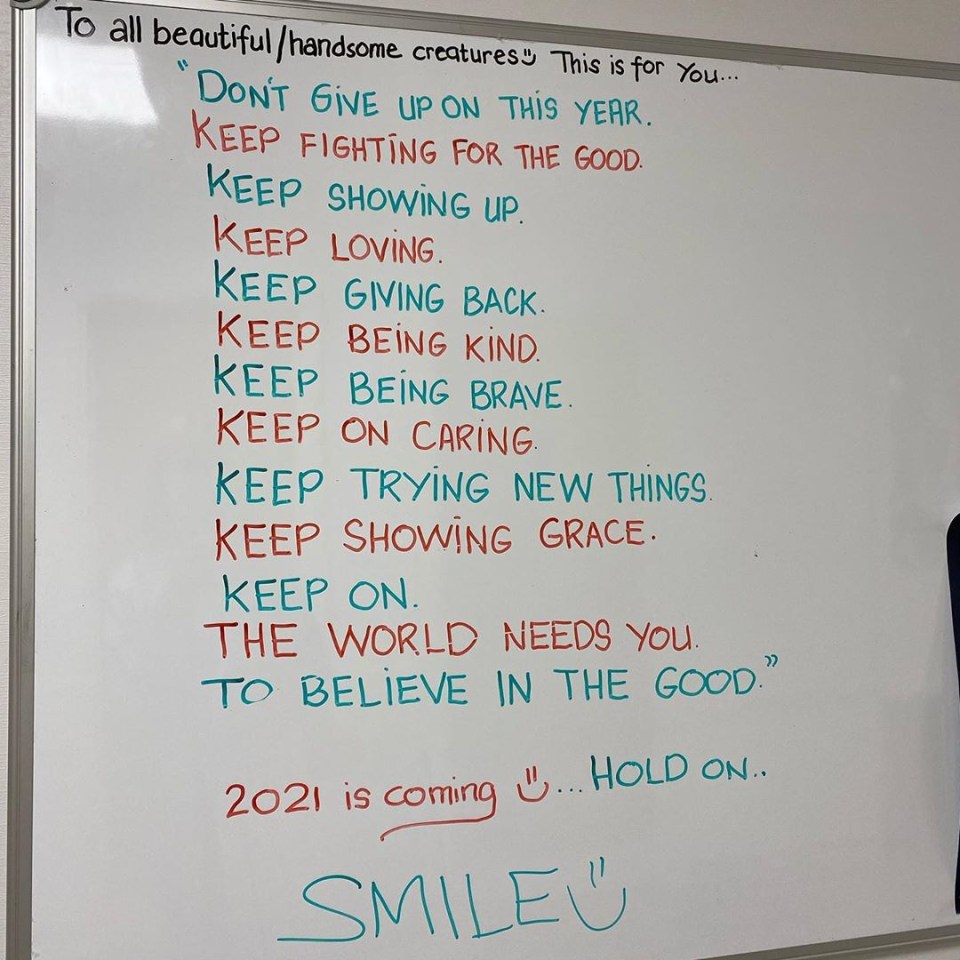 To all beautiful/handsome creatures This is for You...
"DON'T GIVE UP ON THIS YEAR.
KEEP FIGHTING FOR THE GOOD.
KEEP SHOWING UP.
KEEP LOVING.
KEEP GIVING BACK.
KEEP BEING KIND.
KEEP BEING BRAVE.
KEEP ON CARING.
KEEP TRYING NEW THINGS.
KEEP SHOWING GRACE.
KEEP ON.
THE WORLD NEEDS YOU.
TO BELIEVE IN THE GOOD."
2021 is coming ... HOLD ON..
SMILE